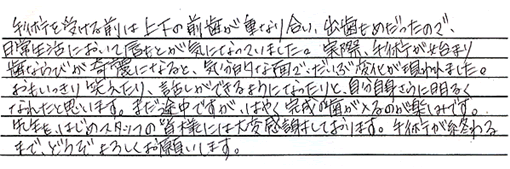 手術を受ける前は上下の前歯が重なり合い、出歯ぎみだったので、
日常生活において唇もとが気になっていました。実際、手術が始まり
歯ならびが奇麗になると、気分的な面で、だいぶ変化が現われました。
おもいっきり笑えたり、話しができるようになったりと、自分自身さらに明るく
なれたと思います。まだ途中ですが、はやく完成の歯が入るのが楽しみです。
先生をはじめスタッフの皆様には大変感謝しております。手術が終わる
まで、どうぞよろしくお願いします。